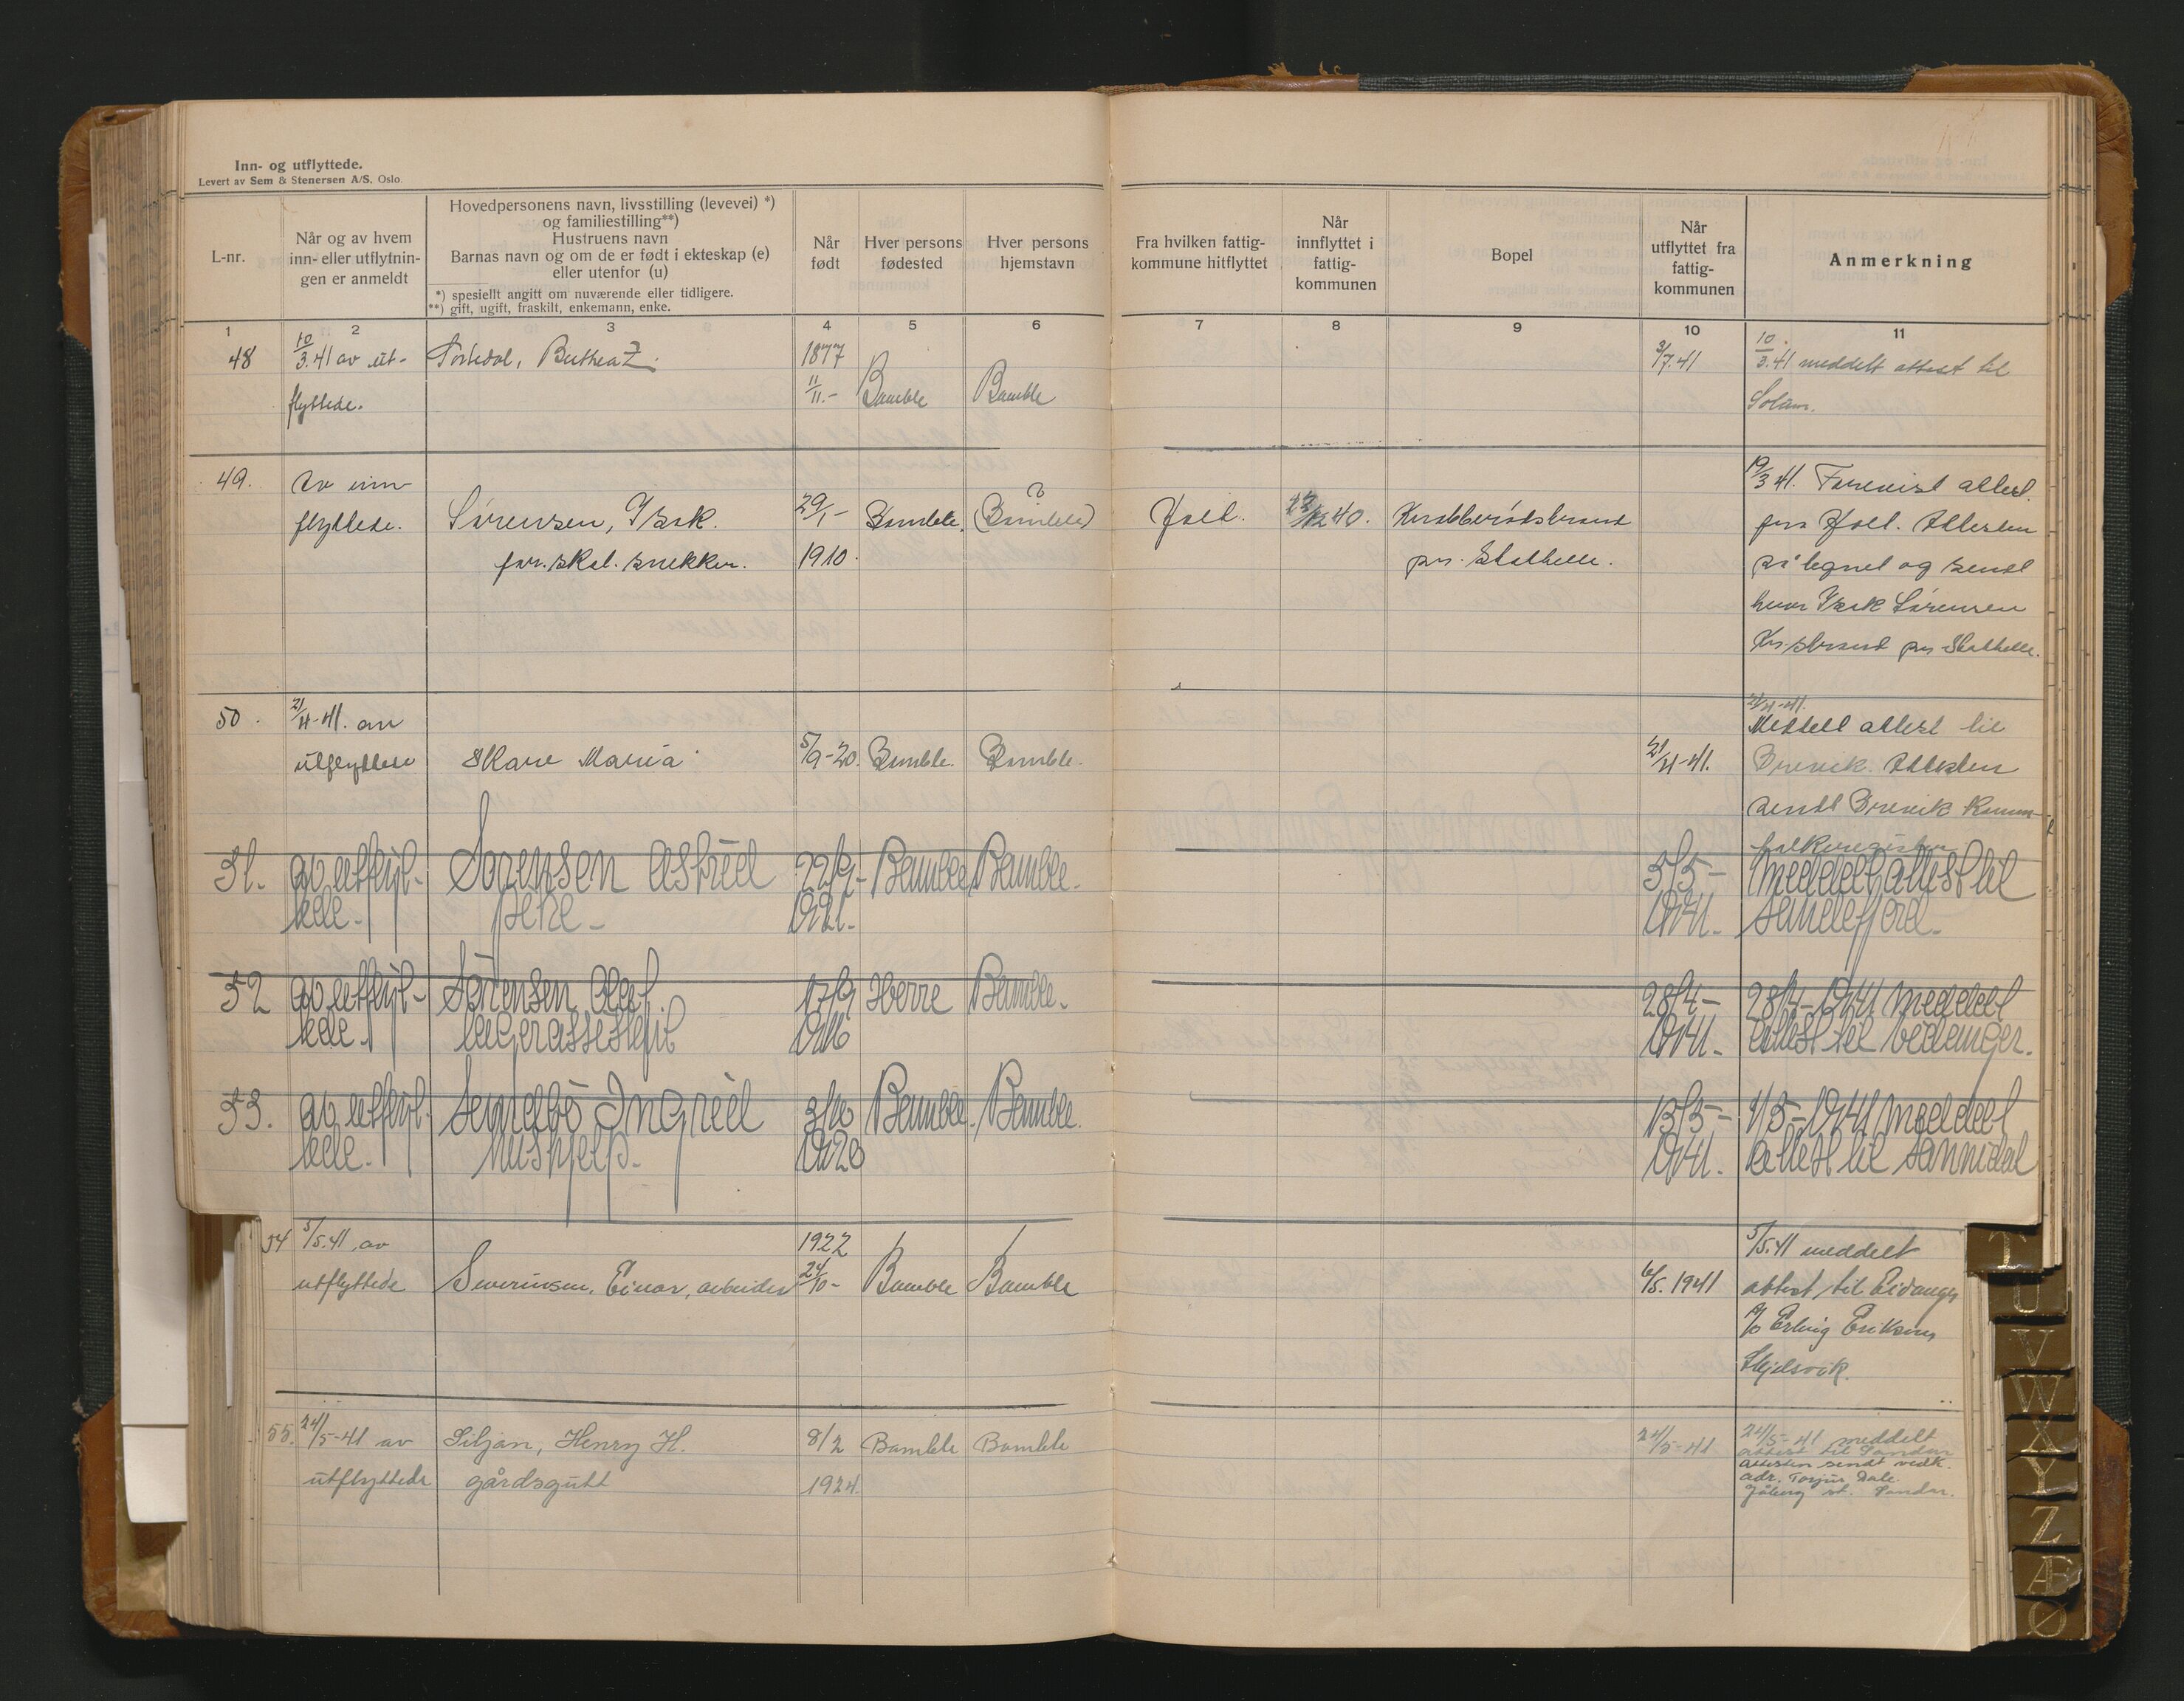 Inn- og utflyttede.
Levert av Sem & Stenersen A/S. Oslo.
L-nr.
Når og av hvem
inn- eller utflytnin-
gen er anmeldt
Hovedpersonens navn, livsstilling (levevei) *)
og familiestilling**)
Hustruens navn
Barnas navn og om de er født i ekteskap (e)
eller utenfor (u)
*) spesiellt angitt om nuværende eller tidligere.
**) gift, ugift, fraskilt, enkemann, enke.
Når
født
Hver persons
fødested
Hver persons
hjemstavn
Fra hvilken fattig-
kommune hitflyttet
Når
innflyttet i
fattig-
kommunen
Bopel
Når
utflyttet fra
fattig-
kommunen
Anmerkning
1 2 3 4 5 6 7 8 9 10 11
48 10/3.41 av ut- 1877 3/7.41 10/3.41 meddelt attest til
flyttede. 11/11.- Bamble Bamble Solum.
49. av inn- 19/3 41. Forevist attest
flyttede. Sørensen, Isak. 29/1- Bamble. (Bamble) Holt. 40. Krabberødstrand fra Holt. Attesten
snekker. 1910. pr. Stathelle. påtegnet og sendt
herr Isak Sørensen
Kr.strand pr Stathelle.
50. 21/4-41. av 21/4-41.
Meddelt attest til
utflyttede Skare Maria 5/9-20. Bamble. Bamble. 21/4-41. Brevik. Attesten
sendt Brevik Komm
folkeregister
51. av utflyt- Sørensen Astrid 22/9- Bamble Bamble. 5/5- Meddelt attest til
tede. 1921. 1941. Sandefjord.
52 av utflyt- Sørensen Olaf. 17/9 Herre Bamble. 28/4- 28/4-1941 meddelt
tede. lagerassistent 1916 1941. attest til
53. av utflyt- Sandbø Ingrid Bamble. Bamble. 13/5- 1/5-1941 meddelt
tede. hushjelp. 1920 1941. attest til Sannidal
54 5/5.41 av 1922 5/5.41 meddelt
utflyttede Severinsen, Einar, arbeider 24/10- Bamble Bamble 6/5.1941 attest til Eidanger
c/o Erling Eriksen,
Skjelsvik.
55. 24/5-41 av Siljan, Henry H. 8/2 Bamble Bamble 24/5-41 24/5-41 meddelt
attest til Sandar
utflyttede gårdsgutt 1924. attesten sendt vedk.
adr. Torjus Dale.
Jåberg st. Sandar.
T
U
V
W
X
Y
Z
Æ
Ø